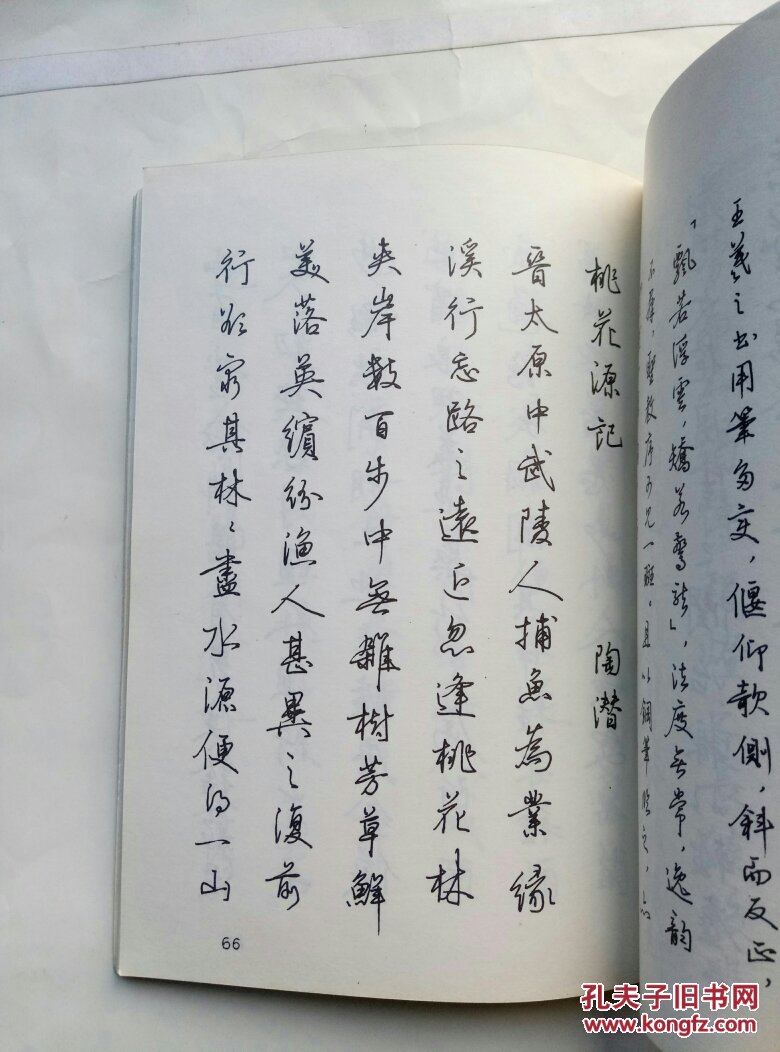 王羲之书用筆多变，偃仰欹側，斜而反正，
「飄若浮雲，矯若驚龍」，法度無常，逸韵
不群，聖教序可见一斑。且以鋼筆
桃花源記 陶潜
晉太原中武陵人捕魚為業緣
溪行忘路之遠近忽逢桃花林
夾岸數百步中無雜樹芳草鮮
美落英繽紛漁人甚異之復前
行欲窮其林〻盡水源便得一山
66
孔夫子旧书网
www.kongfz.com